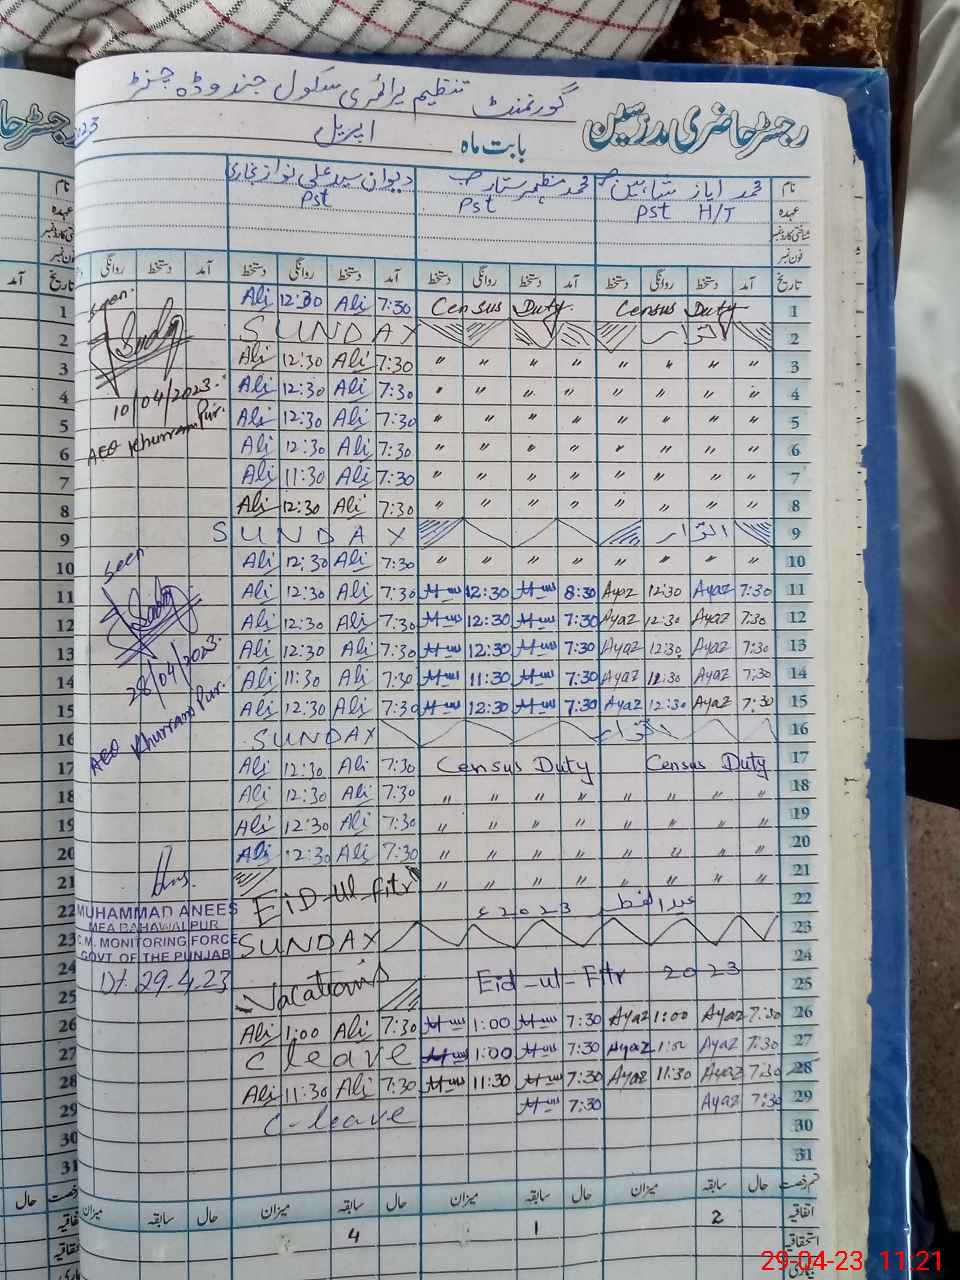 رجسٹر حاضری مدرسین
گورنمنٹ تنظیم پرائمری سکول جندوڈہ
بابت ماہ اپریل 2023
نام محمد ایاز شاہین محمد مظہر ستار دیوان سید علی نواز بخاری
عہدہ PST H/T PST PST
شناختی کارڈ نمبر
فون نمبر
تاریخ آمد دستخط روانگی دستخط آمد دستخط روانگی دستخط آمد دستخط روانگی دستخط آمد دستخط روانگی
1 Census Duty Census Duty. 7:30 Ali 12:30 Ali
2 اتوار SUNDAY
3 " " " " " " " " 7:30 Ali 12:30 Ali
4 " " " " " " " " 7:30 Ali 12:30 Ali
5 " " " " " " " " 7:30 Ali 12:30 Ali
6 " " " " " " " " 7:30 Ali 12:30 Ali
7 " " " " " " " " 7:30 Ali 11:30 Ali
8 " " " " " " " " 7:30 Ali 12:30 Ali
9 اتوار SUNDAY
10 " " " " " " " " 7:30 Ali 12:30 Ali
11 7:30 Ayaz 12:30 Ayaz 8:30 12:30 7:30 Ali 12:30 Ali
12 7:30 Ayaz 12:30 Ayaz 7:30 12:30 7:30 Ali 12:30 Ali
13 7:30 Ayaz 12:30 Ayaz 7:30 12:30 7:30 Ali 12:30 Ali
14 7:30 Ayaz Ayaz 7:30 11:30 7:30 Ali 11:30 Ali
15 7:30 Ayaz 12:30 Ayaz 7:30 12:30 7:30 Ali 12:30 Ali
16 اتوار SUNDAY
17 Census Duty Census Duty 7:30 Ali 12:30 Ali
18 " " " " " " " " 7:30 Ali 12:30 Ali
19 " " " " " " " " 7:30 Ali 12:30 Ali
20 " " " " " " " " 7:30 Ali 12:30 Ali
21 " " " " " " " "
22 عید الفطر 2023ء Eid-ul-fitr
23 SUNDAY
24 Eid-ul-Fitr 2023
25 Vacations
26 7:30 Ayaz 1:00 Ayaz 7:30 1:00 7:30 Ali 1:00 Ali
27 7:30 Ayaz 1:00 Ayaz 7:30 1:00 C leave
28 7:30 Ayaz 11:30 Ayaz 7:30 11:30 7:30 Ali 11:30 Ali
29 7:30 Ayaz 7:30 C-leave
30
31
حال سابقہ میزان حال سابقہ میزان حال سابقہ میزان حال سابقہ میزان
اتفاقیہ 2 1 4
استحقاقیہ
seen.
10/04/2023.
AEO Khurram Pur.
seen
28/04/2023.
AEO Khurram Pur.
MUHAMMAD ANEES
MEA BAHAWALPUR
C.M. MONITORING FORCE
GOVT. OF THE PUNJAB
Dt. 29-4-23
رجسٹر حا
نام
عہدہ
تاریخ آمد
1
2
3
4
5
6
7
8
9
10
11
12
13
14
15
16
17
18
19
20
21
22
23
24
25
26
27
28
29
30
31
حال
29-04-23 11:21